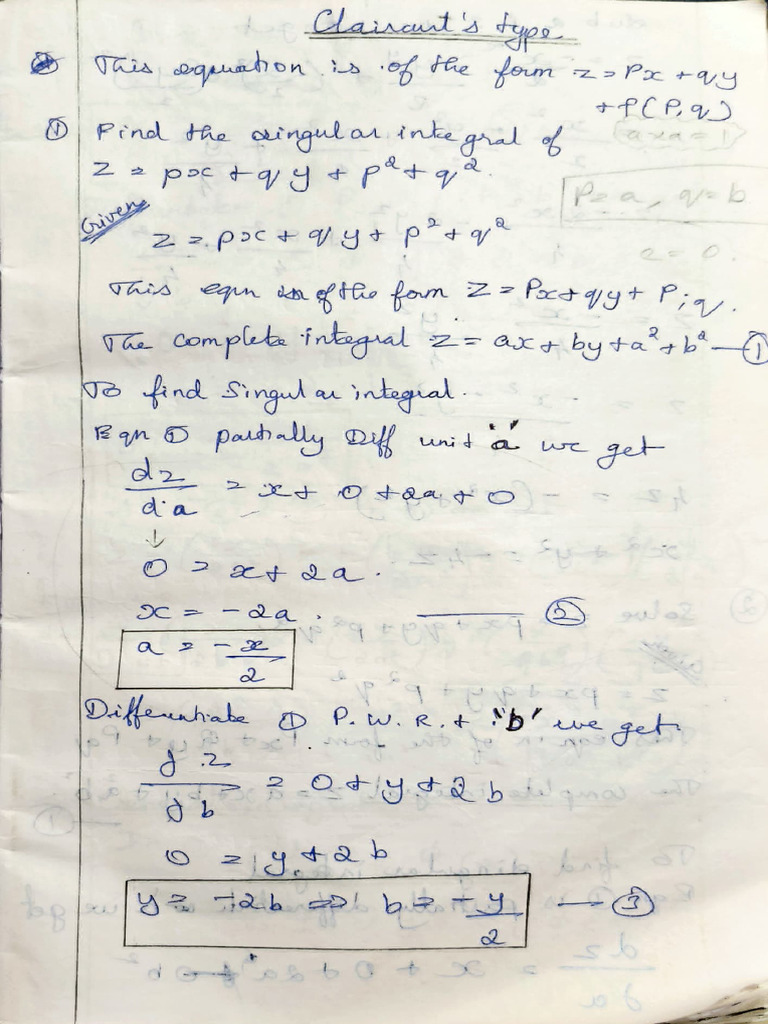 Clairaut's type
This equation is of the form z = Px + qy
+ f(P,q)
① Find the singular integral of
z = px + qy + p² + q².
Given
z = px + qy + p² + q²
This eqn is of the form z = Px + qy + P,q.
The complete integral z = ax + by + a² + b² — ①
To find Singular integral.
Eqn ① partially Diff "a" we get
dz/da = x + 0 + 2a + 0
↓
0 = x + 2a.
x = -2a. — ②
a = -x/2
Differentiate ① P. W. R. t "b" we get.
∂z/∂b = 0 + y + 2b
0 = y + 2b
y = -2b => b = -y/2 — ③